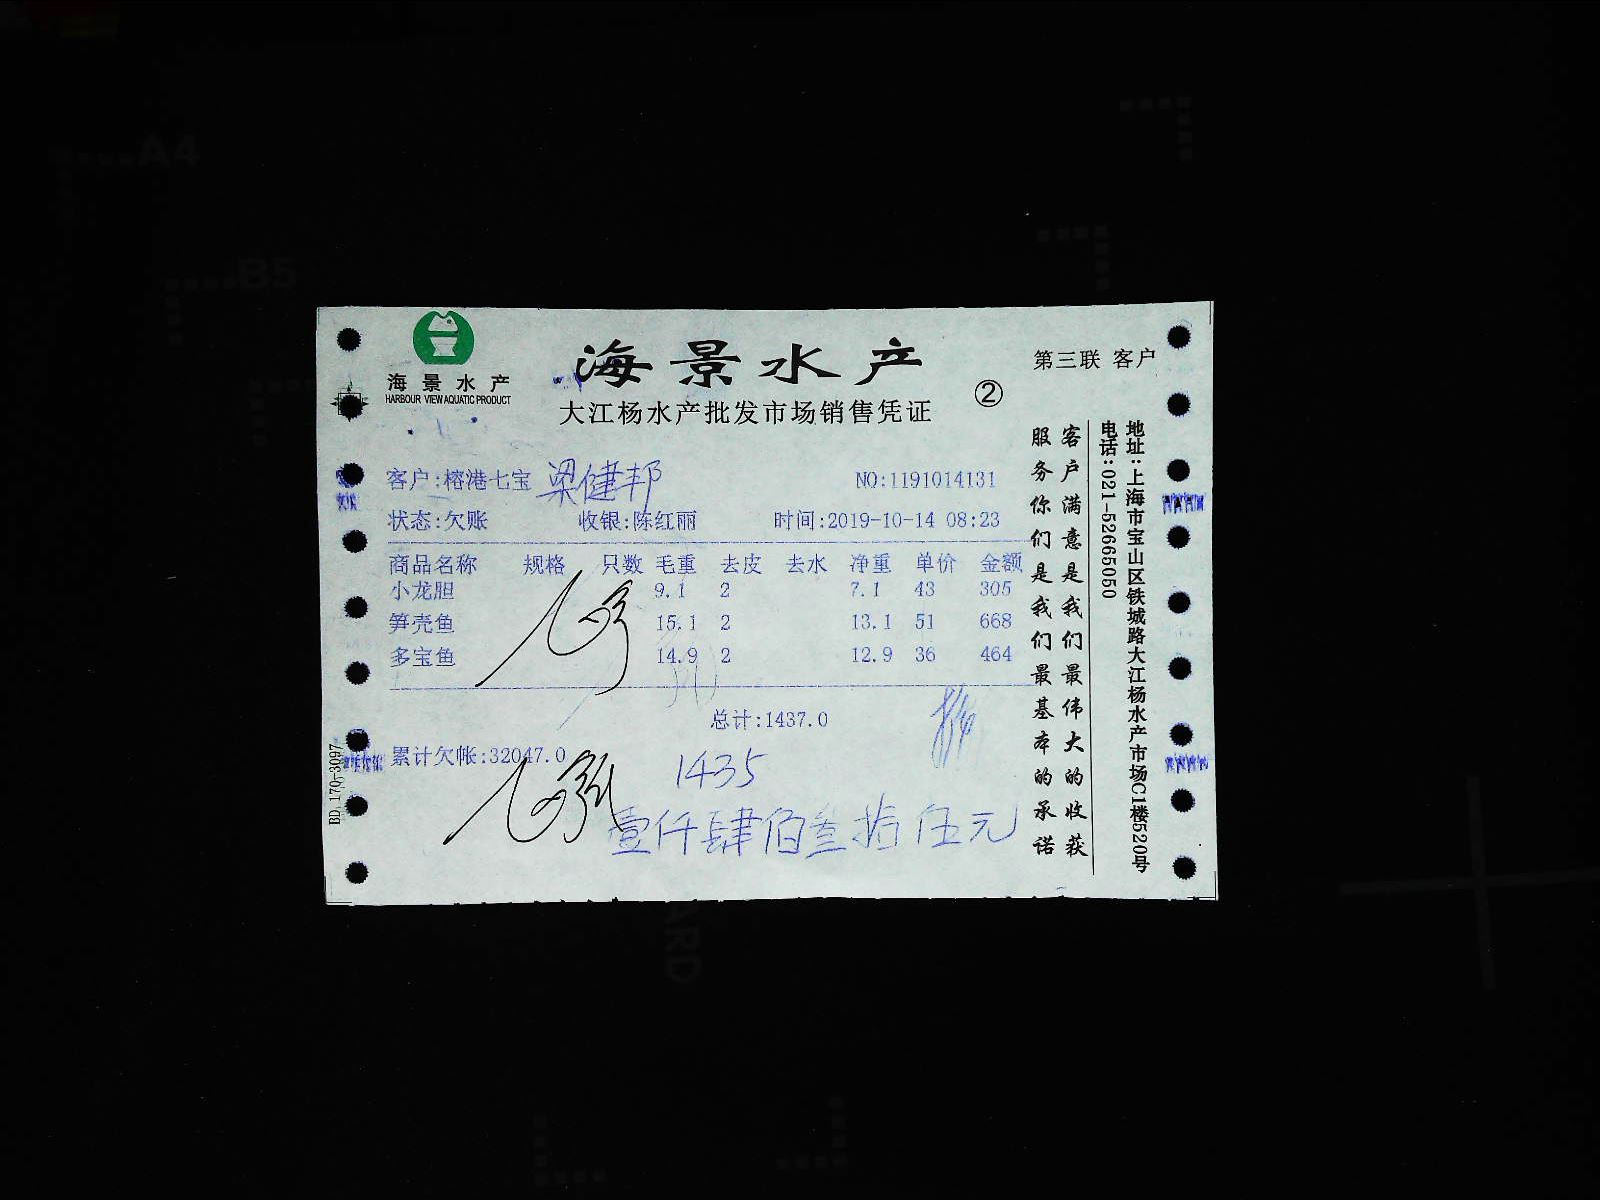 A4
B5
海景水产
HARBOUR VIEW AQUATIC PRODUCT
海景水产
大江杨水产批发市场销售凭证
②
第三联 客户
客户:榕港七宝 梁健邦
NO:1191014131
状态:欠账 收银:陈红丽 时间:2019-10-14 08:23
商品名称 规格 只数 毛重 去皮 去水 净重 单价 金额
小龙胆 9.1 2 7.1 43 305
笋壳鱼 15.1 2 13.1 51 668
多宝鱼 14.9 2 12.9 36 464
总计:1437.0
累计欠帐:32047.0
1435
壹仟肆佰叁拾伍元
客户满意是我们最伟大的收获
服务你们是我们最基本的承诺
地址:上海市宝山区铁城路大江杨水产市场C1楼520号
电话:021-52665050
BD.170-3097
ARD